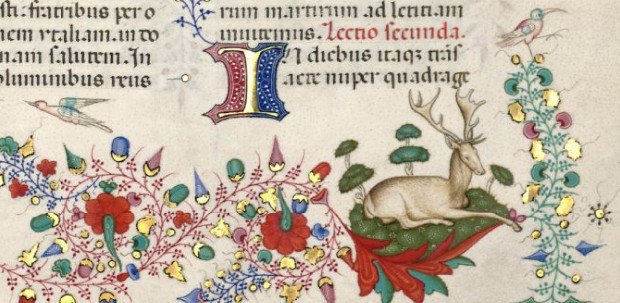 sti. fratribus per o
nem ytaliam. in do
nam salutem. In
oluminibus reus
rum martirum ad letitiam
inuitemus. Lectio secunda.
In diebus itaqꝫ trāſ
acte nuper quadrage